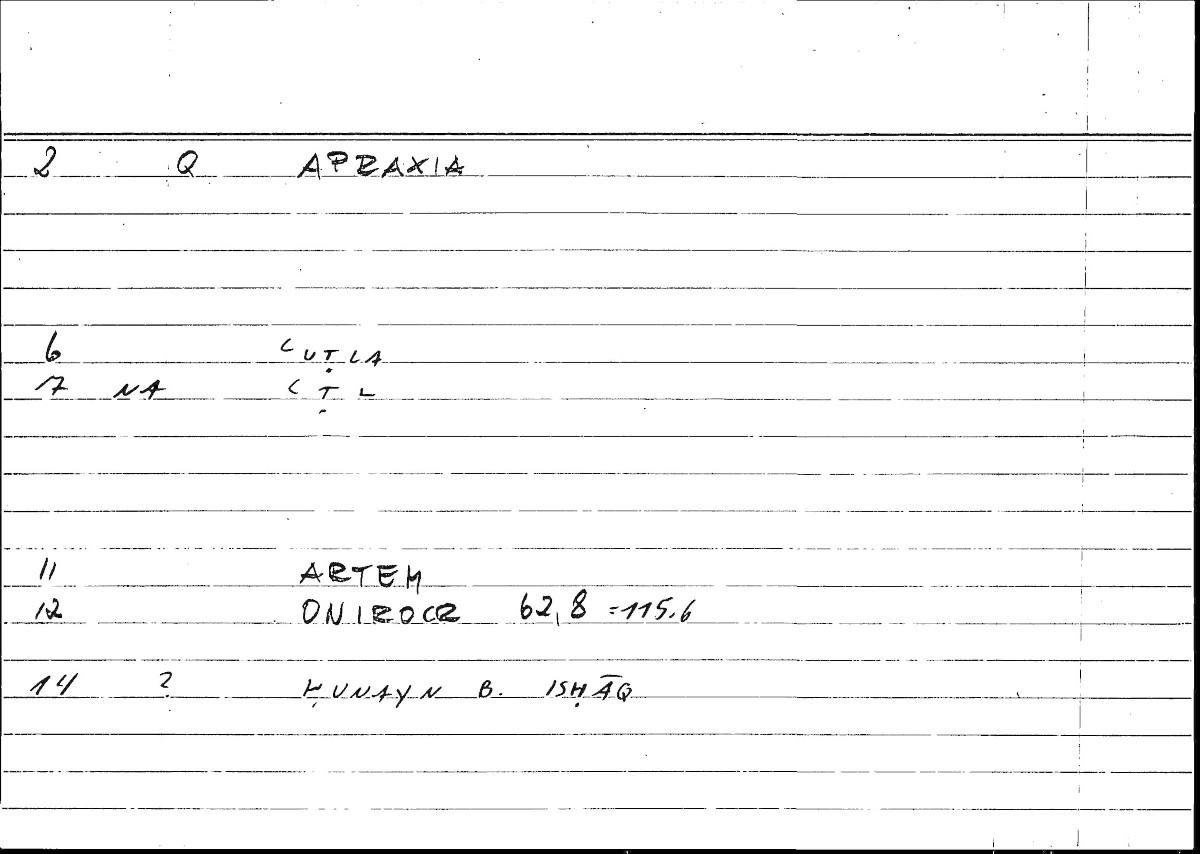 2 Q APRAXIA
6 ʿUṬLA
7 NA ʿṬL
11 ARTEM
12 ONIROCR 62,8 =115.6
14 2 ḤUNAYN B. ISḤĀQ